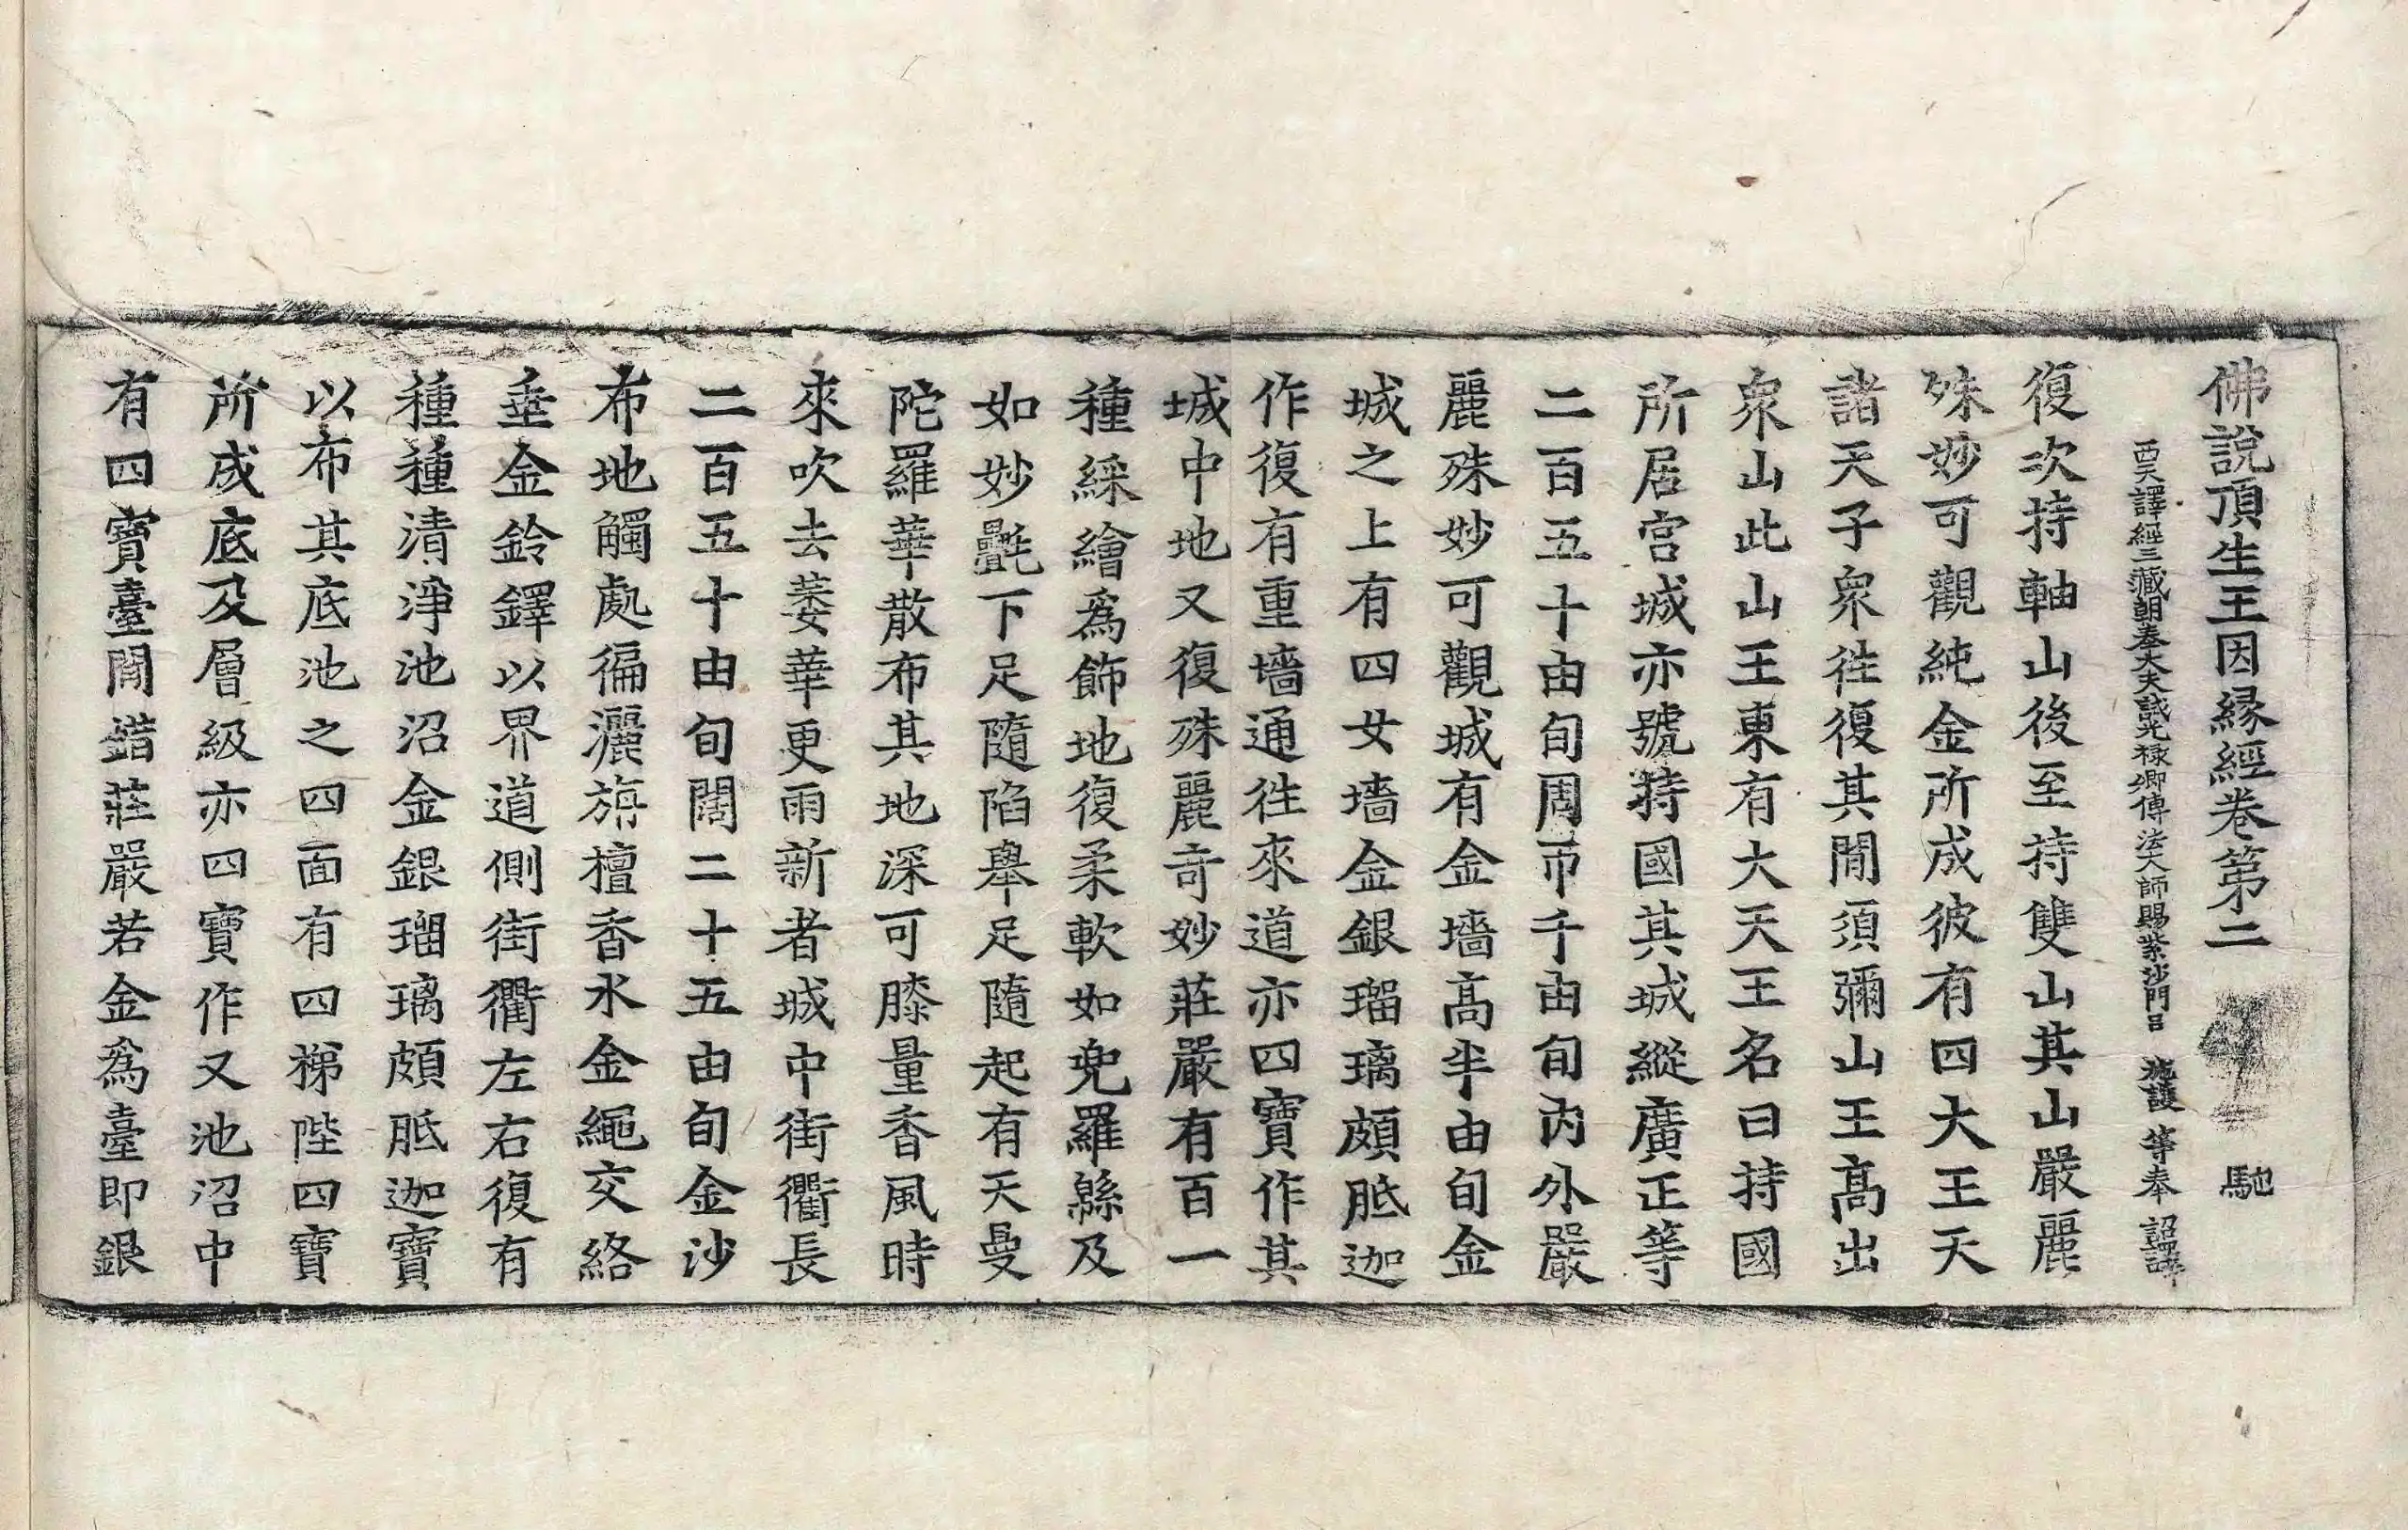 佛說頂生王因縁經卷第二 馳
西天譯經三藏朝奉大夫試光祿卿傳法大師賜紫沙門臣 施護 等奉 詔譯
復次持軸山後至持雙山其山嚴麗
殊妙可觀純金所成彼有四大王天
諸天子衆徃復其閒須彌山王髙出
衆山此山王東有大天王名曰持國
所居宮城亦號持國其城縱廣正等
二百五十由旬周帀千由旬內外嚴
麗殊妙可觀城有金墻髙半由旬金
城之上有四女墻金銀瑠璃頗胝迦
作復有重墻通徃來道亦四寶作其
城中地又復殊麗奇妙莊嚴有百一
種綵繪爲飾地復柔軟如兜羅緜及
如妙氎下足隨陷舉足隨起有天曼
陀羅華散布其地深可膝量香風時
來吹去萎華更雨新者城中街衢長
二百五十由旬闊二十五由旬金沙
布地觸處徧灑旃檀香水金繩交絡
垂金鈴鐸以界道側街衢左右復有
種種清淨池沼金銀瑠璃頗胝迦寶
以布其底池之四面有四梯陛四寶
所成底及層級亦四寶作又池沼中
有四寶臺閒錯莊嚴若金爲臺即銀